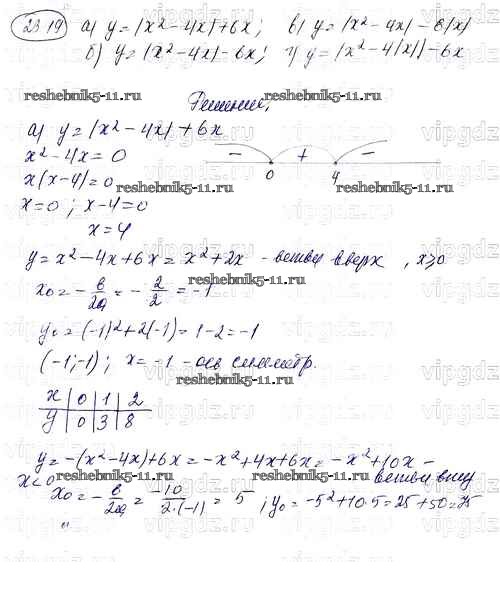 23.19 а) y = |x² - 4x| + 6x; в) y = |x² - 4x| - 6|x|
б) y = |x² - 4x| - 6x; г) y = |x² - 4|x|| - 6x
reshebnik5-11.ru reshebnik5-11.ru
Решение,
а) y = |x² - 4x| + 6x
x² - 4x = 0
- + -
0 4
x(x-4) = 0
x = 0; x - 4 = 0
x = 4
reshebnik5-11.ru reshebnik5-11.ru
y = x² - 4x + 6x = x² + 2x - ветви вверх, x ≥ 0
x₀ = - в/2a = - 2/2 = -1
reshebnik5-11.ru
y₀ = (-1)² + 2(-1) = 1 - 2 = -1
(-1; -1); x = -1 - ось симметр.
reshebnik5-11.ru
x | 0 | 1 | 2
y | 0 | 3 | 8
y = -(x² - 4x) + 6x = -x² + 4x + 6x = -x² + 10x -
x < 0 ветви вниз
reshebnik5-11.ru reshebnik5-11.ru
x₀ = - в/2a = -10/2·(-1) = 5; y₀ = -5² + 10·5 = 25 + 50 = 75
vipgdz.ru